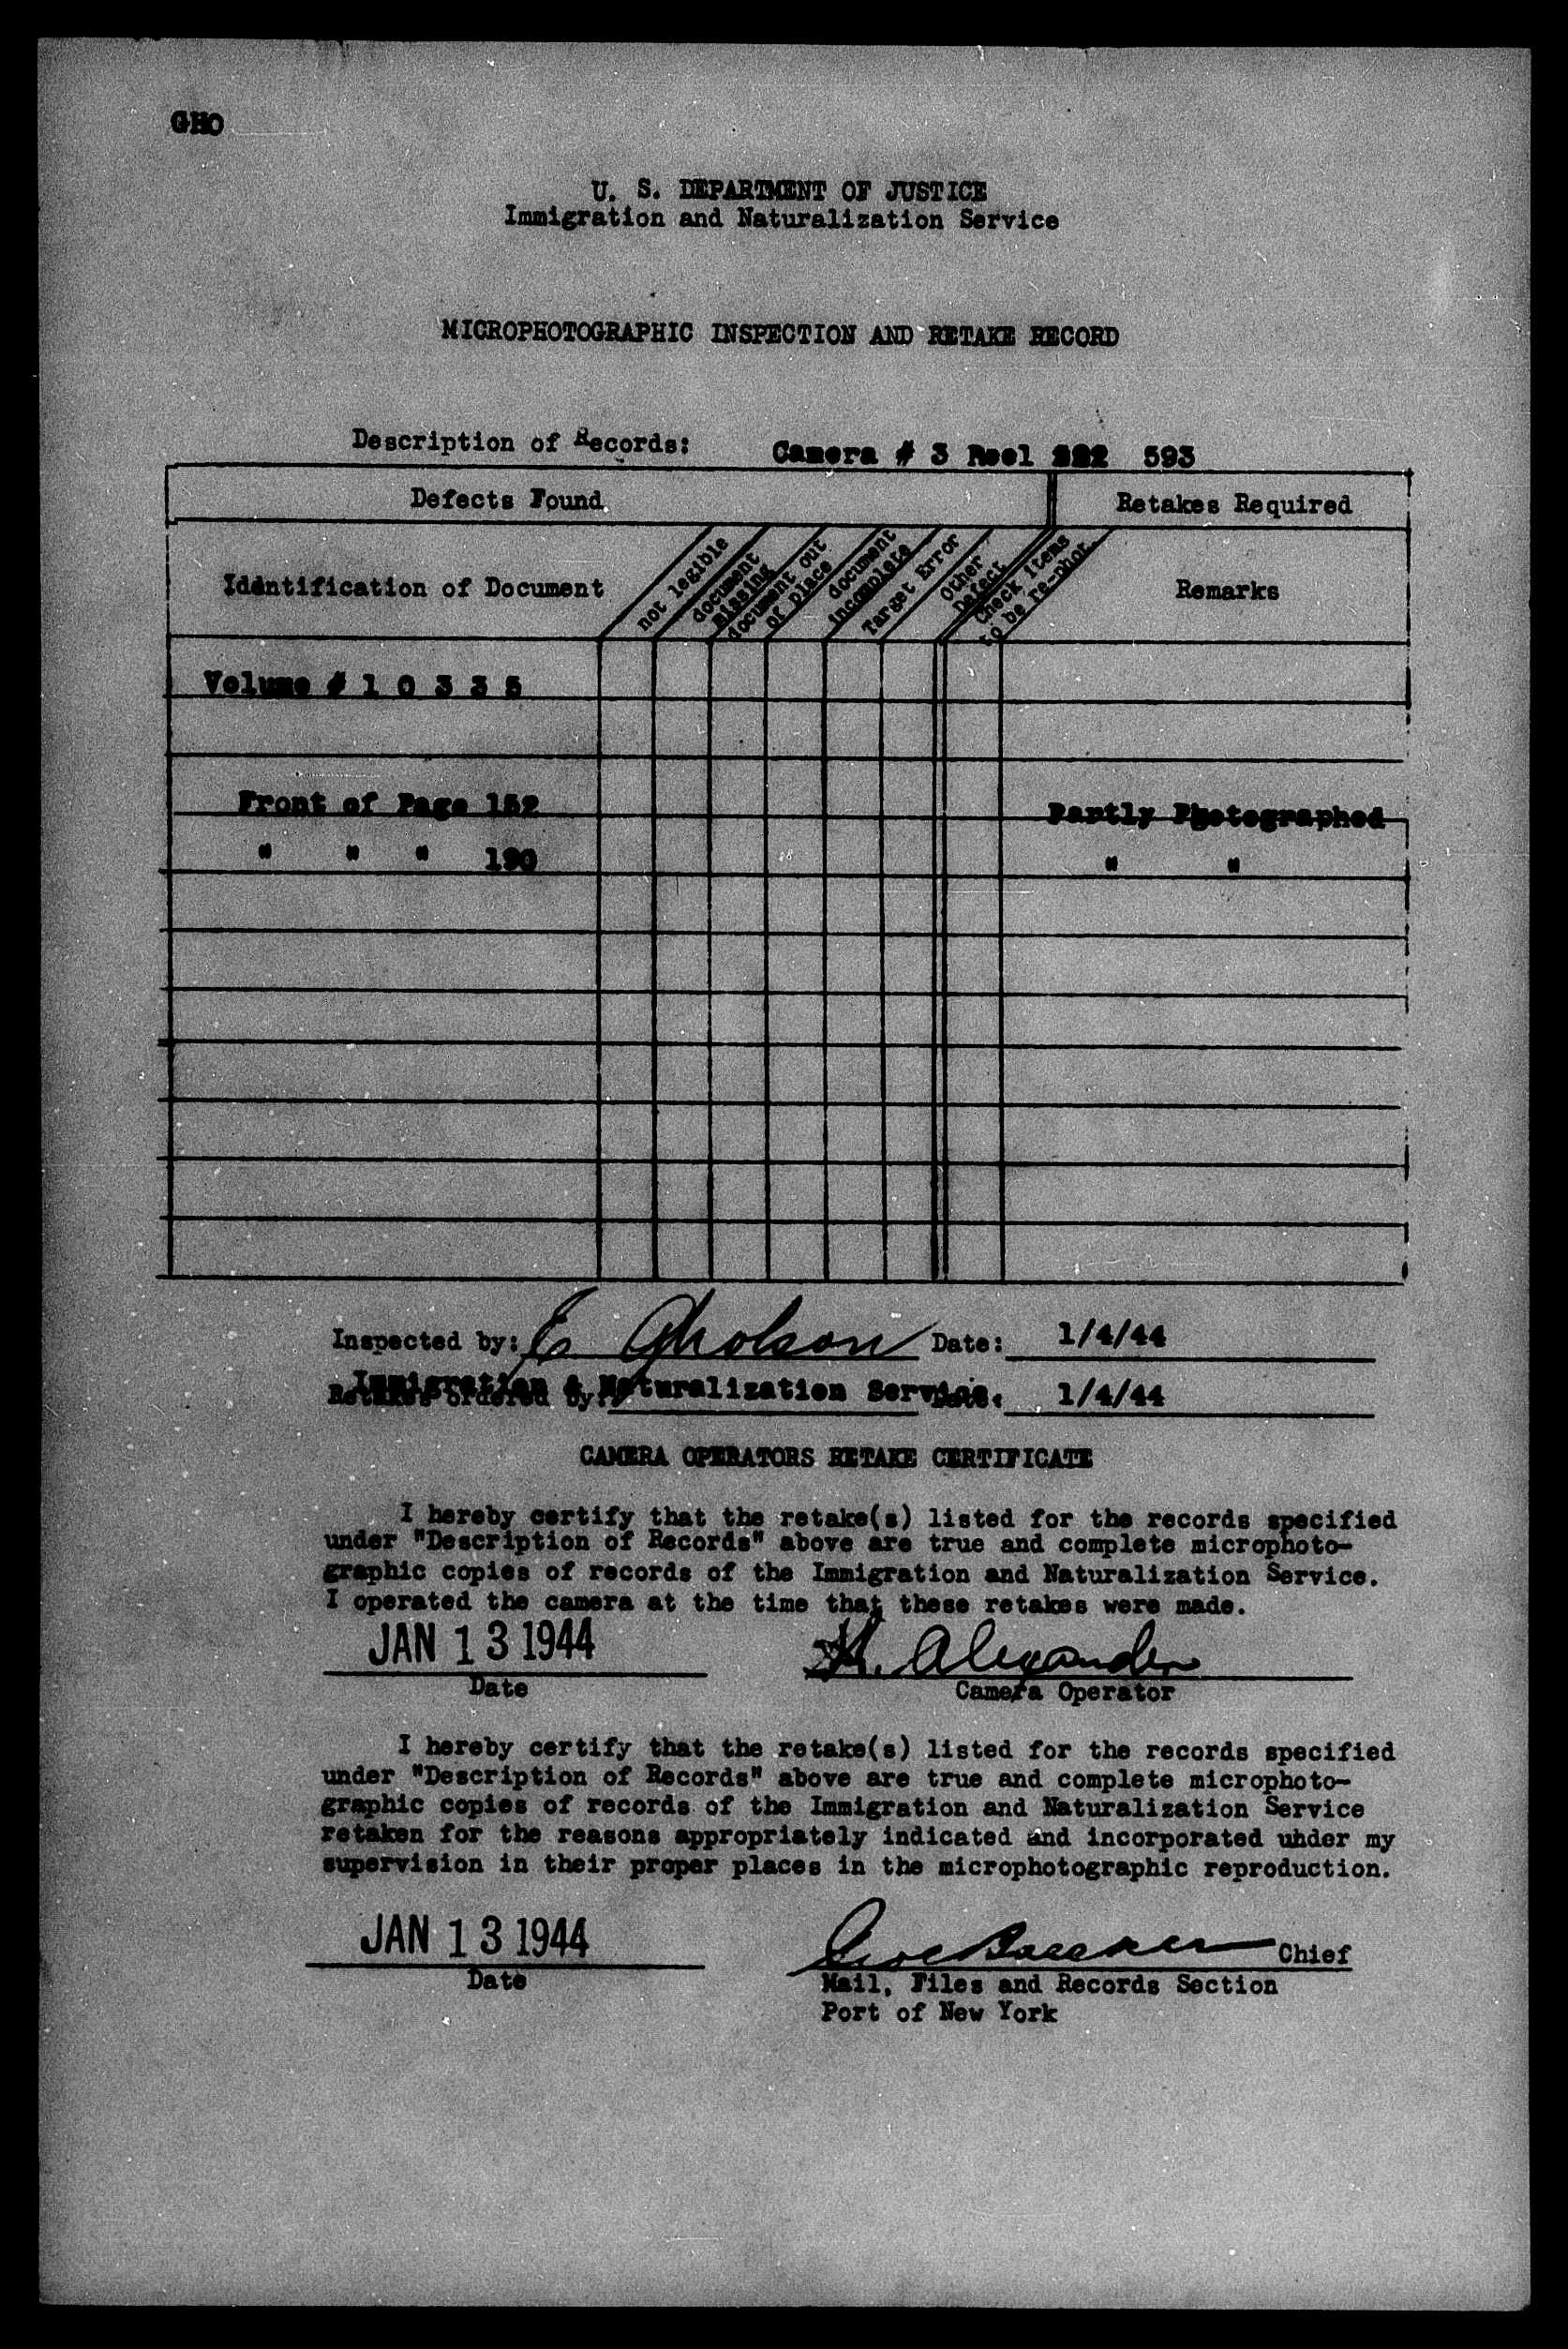 GHO
U. S. DEPARTMENT OF JUSTICE
Immigration and Naturalization Service
MICROPHOTOGRAPHIC INSPECTION AND RETAKE RECORD
Description of Records: Camera # 3 Reel 593
Defects Found
Retakes Required
Identification of Document
not legible
document missing
document out of place
document incomplete
Target Error
Other Defect
Check items to be re-phot.
Remarks
Volume # 1 0 3 3 5
Front of Page 152 Partly Photographed
" " " 190 " "
Inspected by: E Gholson Date: 1/4/44
Retakes ordered by: Immigration & Naturalization Service. Date: 1/4/44
CAMERA OPERATORS RETAKE CERTIFICATE
I hereby certify that the retake(s) listed for the records specified
under "Description of Records" above are true and complete microphoto-
graphic copies of records of the Immigration and Naturalization Service.
I operated the camera at the time that these retakes were made.
JAN 13 1944 H. Alexander
Date Camera Operator
I hereby certify that the retake(s) listed for the records specified
under "Description of Records" above are true and complete microphoto-
graphic copies of records of the Immigration and Naturalization Service
retaken for the reasons appropriately indicated and incorporated uhder my
supervision in their proper places in the microphotographic reproduction.
JAN 13 1944 Chief
Date Mail, Files and Records Section
Port of New York